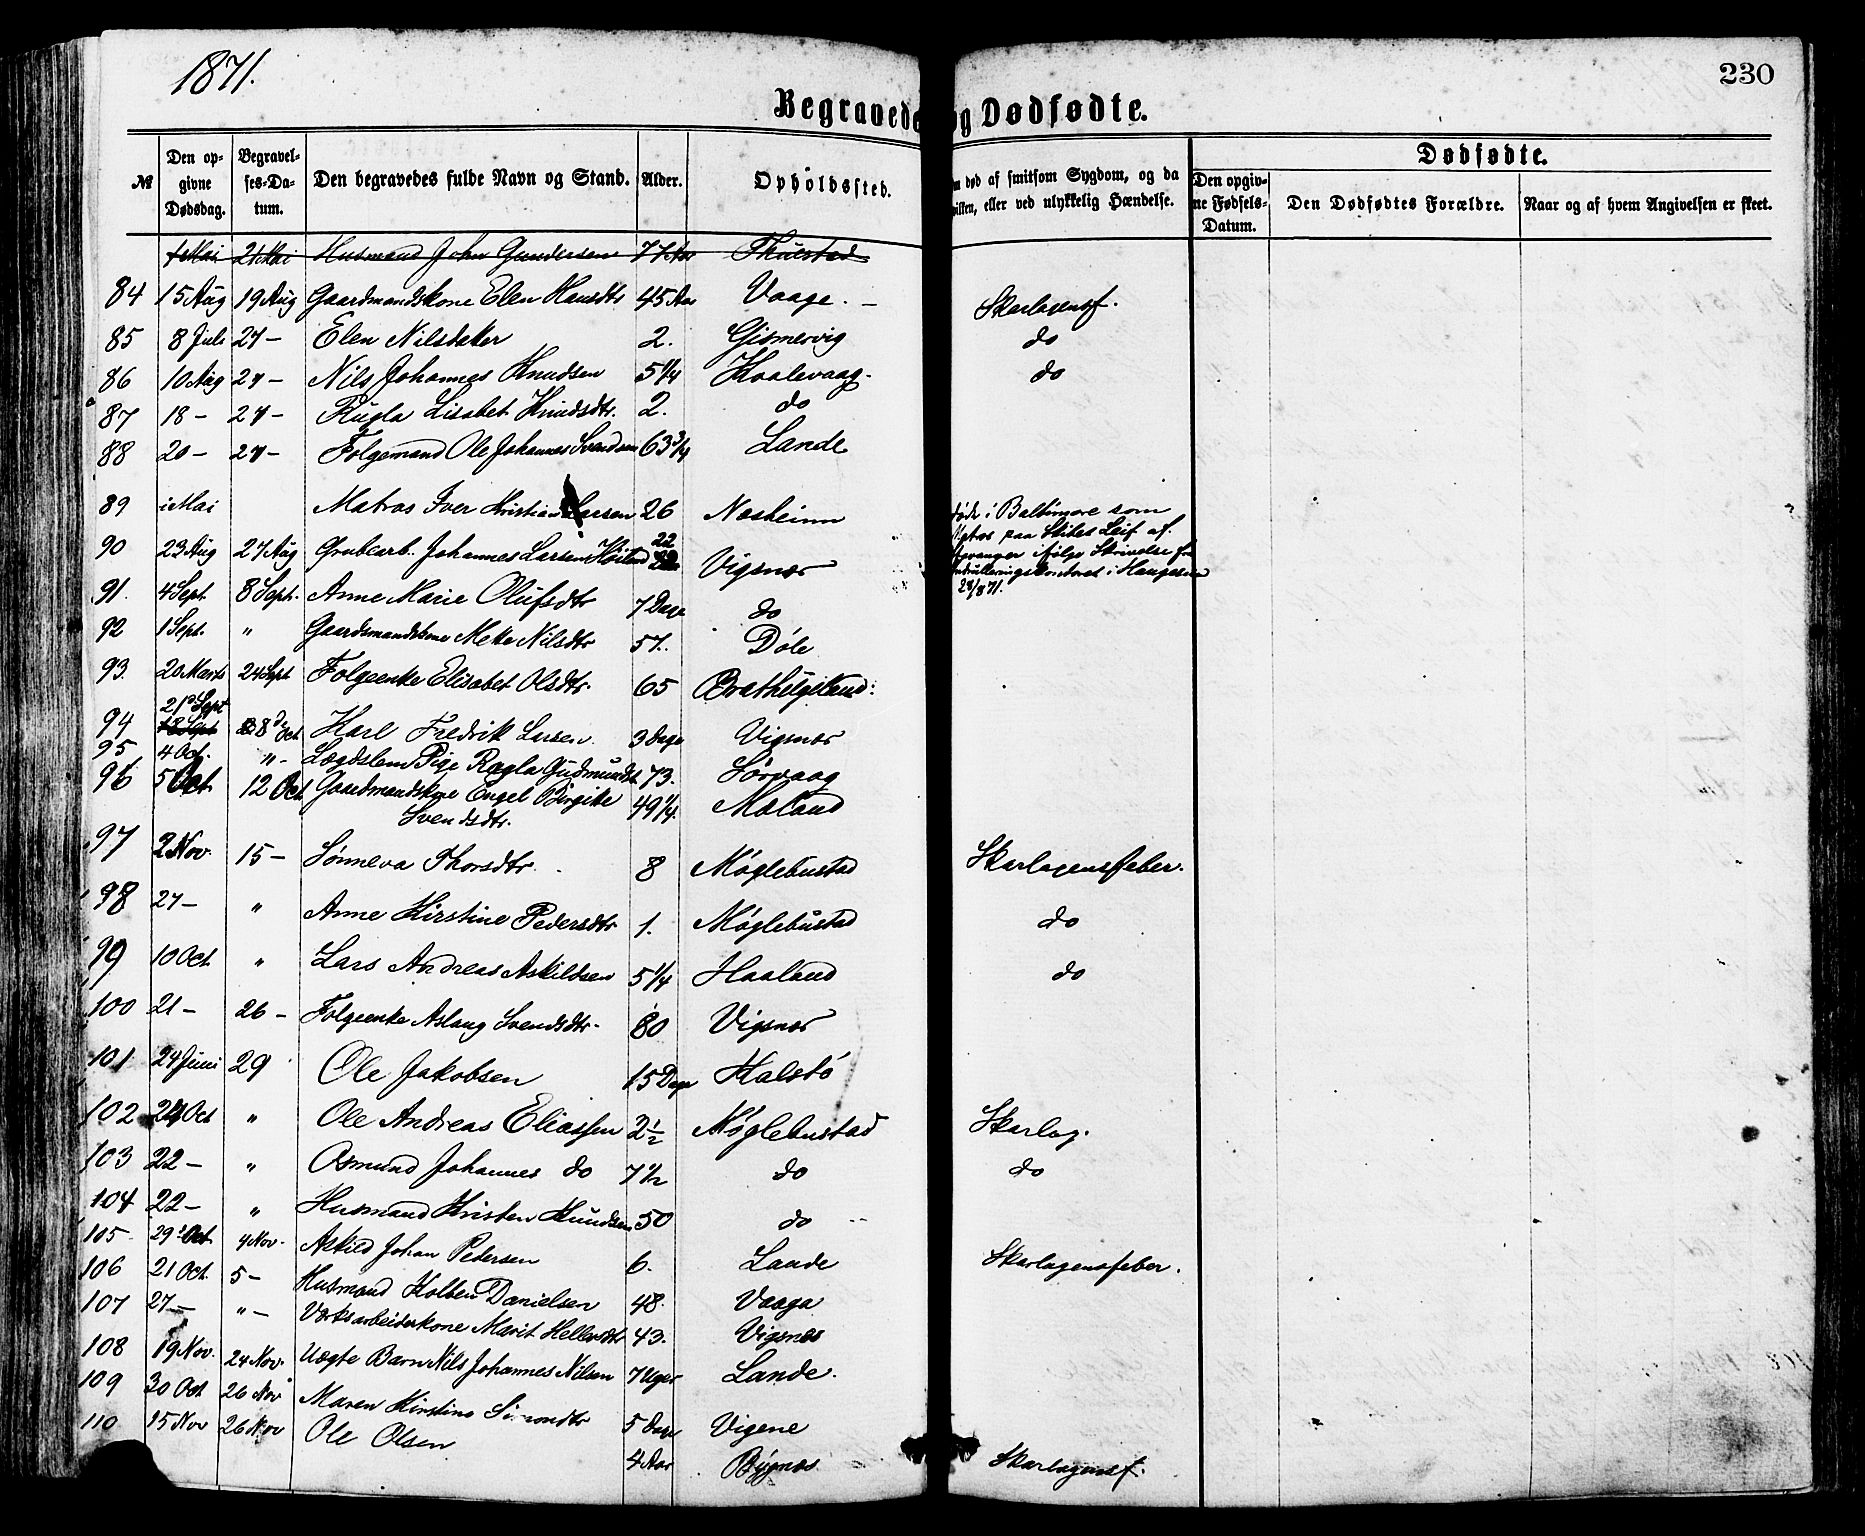 1871.
230
Begravede og Dødfødte.
№
Den opgivne Dødsdag.
Begravelses-Datum.
Den begravedes fulde Navn og Stand.
Alder.
Opholdssted.
død af smitsom Sygdom, og da
eller ved ulykkelig Hændelse.
Dødfødte.
Den opgivne Fødsels-Datum.
Den Dødfødtes Forældre.
Naar og af hvem Angivelsen er skeet.
Mai 21 Mai Husmand John Gundersen 77 Aar
84 15 Aug 19 Aug Gaardmandskone Elen Hansdtr 45 Aar Vaage. – Skarlagensf.
85 8 Juli 27 – Elen Nilsdater 2. Gismervig do
86 10 Aug 27 – Nils Johannes Knudsen 5 1/4 Kaalevaag. do
87 18 – 27 – Lisabet Knudsdtr. 2. do
88 20 – 27 – Folgemand Ole Johannes Svendsen 63 3/4 Lande
89 i Mai Matros Iver Kristian Larsen 26 Nesheim døde i Baltimore som
paa Skibet Leif af
Stavanger ifølge Skrivelse fra
i Haugesun
28/8 71.
90 23 Aug 27 Aug Grubearb. Johannes Larsen 22 Vigsnæs
91. 4 Sept 8 Sept. Anne Marie Olufsdtr 7 Dage do
92 1 Sept. " Gaardsmandskone Meke Nilsdtr 57. Døle
93. 20 Marts 24 Sept Folgeenke Elisabet Olsdtr. 65
94 21 Sept 18 Sept 8 Oct Karl Fredrik Larsen. 3 Dage Vigsnæs
95 4 Oct. " – Lægdslem Pige Ragla Gudmundsdt 73. Sørvaag
96 5 Oct 12 Oct Gaardmandskone Engel Birgite 49 1/4. Mæland
Svendsdtr.
97 2 Nov. 15 – Sønneva Thorsdtr. 8 Møglebustad Skarlagensfeber.
98 27 – " Anne Kirstine Pedersdtr 1. Møglebustad do
99 10 Oct " Lars Andreas Askildsen 5 1/4 Haaland do
100 21 – 26 – Folgeenke Aslaug Svendsdtr. 80 Vigsnæs
101 24 Juni 29 Ole Jakobsen 15 Dage Kalstø
102 24 Oct " Ole Andreas Eliassen 2 1/2 Møglebustad Skarlag.
103 22 – " Asmund Johannes do 7 1/2 do do
104 22 – " Husmand Kristen Knudsen 50 do
105 29 Oct 4 Nov. Askild Johan Pedersen 6. Lande Skarlagensfeber.
106 21 Oct. 5 – Husmand Kolben Danielsen 48. Vaaga
107 27 – " – Værksarbeiderkone Marit Hellesdtr 43. Vigsnes
108 19 Nov. 24 Nov. Uægte Barn Nils Johannes Nilsen 7 Uger Lande.
109 30 Oct 26 Nov Maren Kirstine Simondtr 5 Dage Vigsne
110 15 Nov 26 Nov Ole Olsen 4 Aar Bygnæs Skarlagensf.